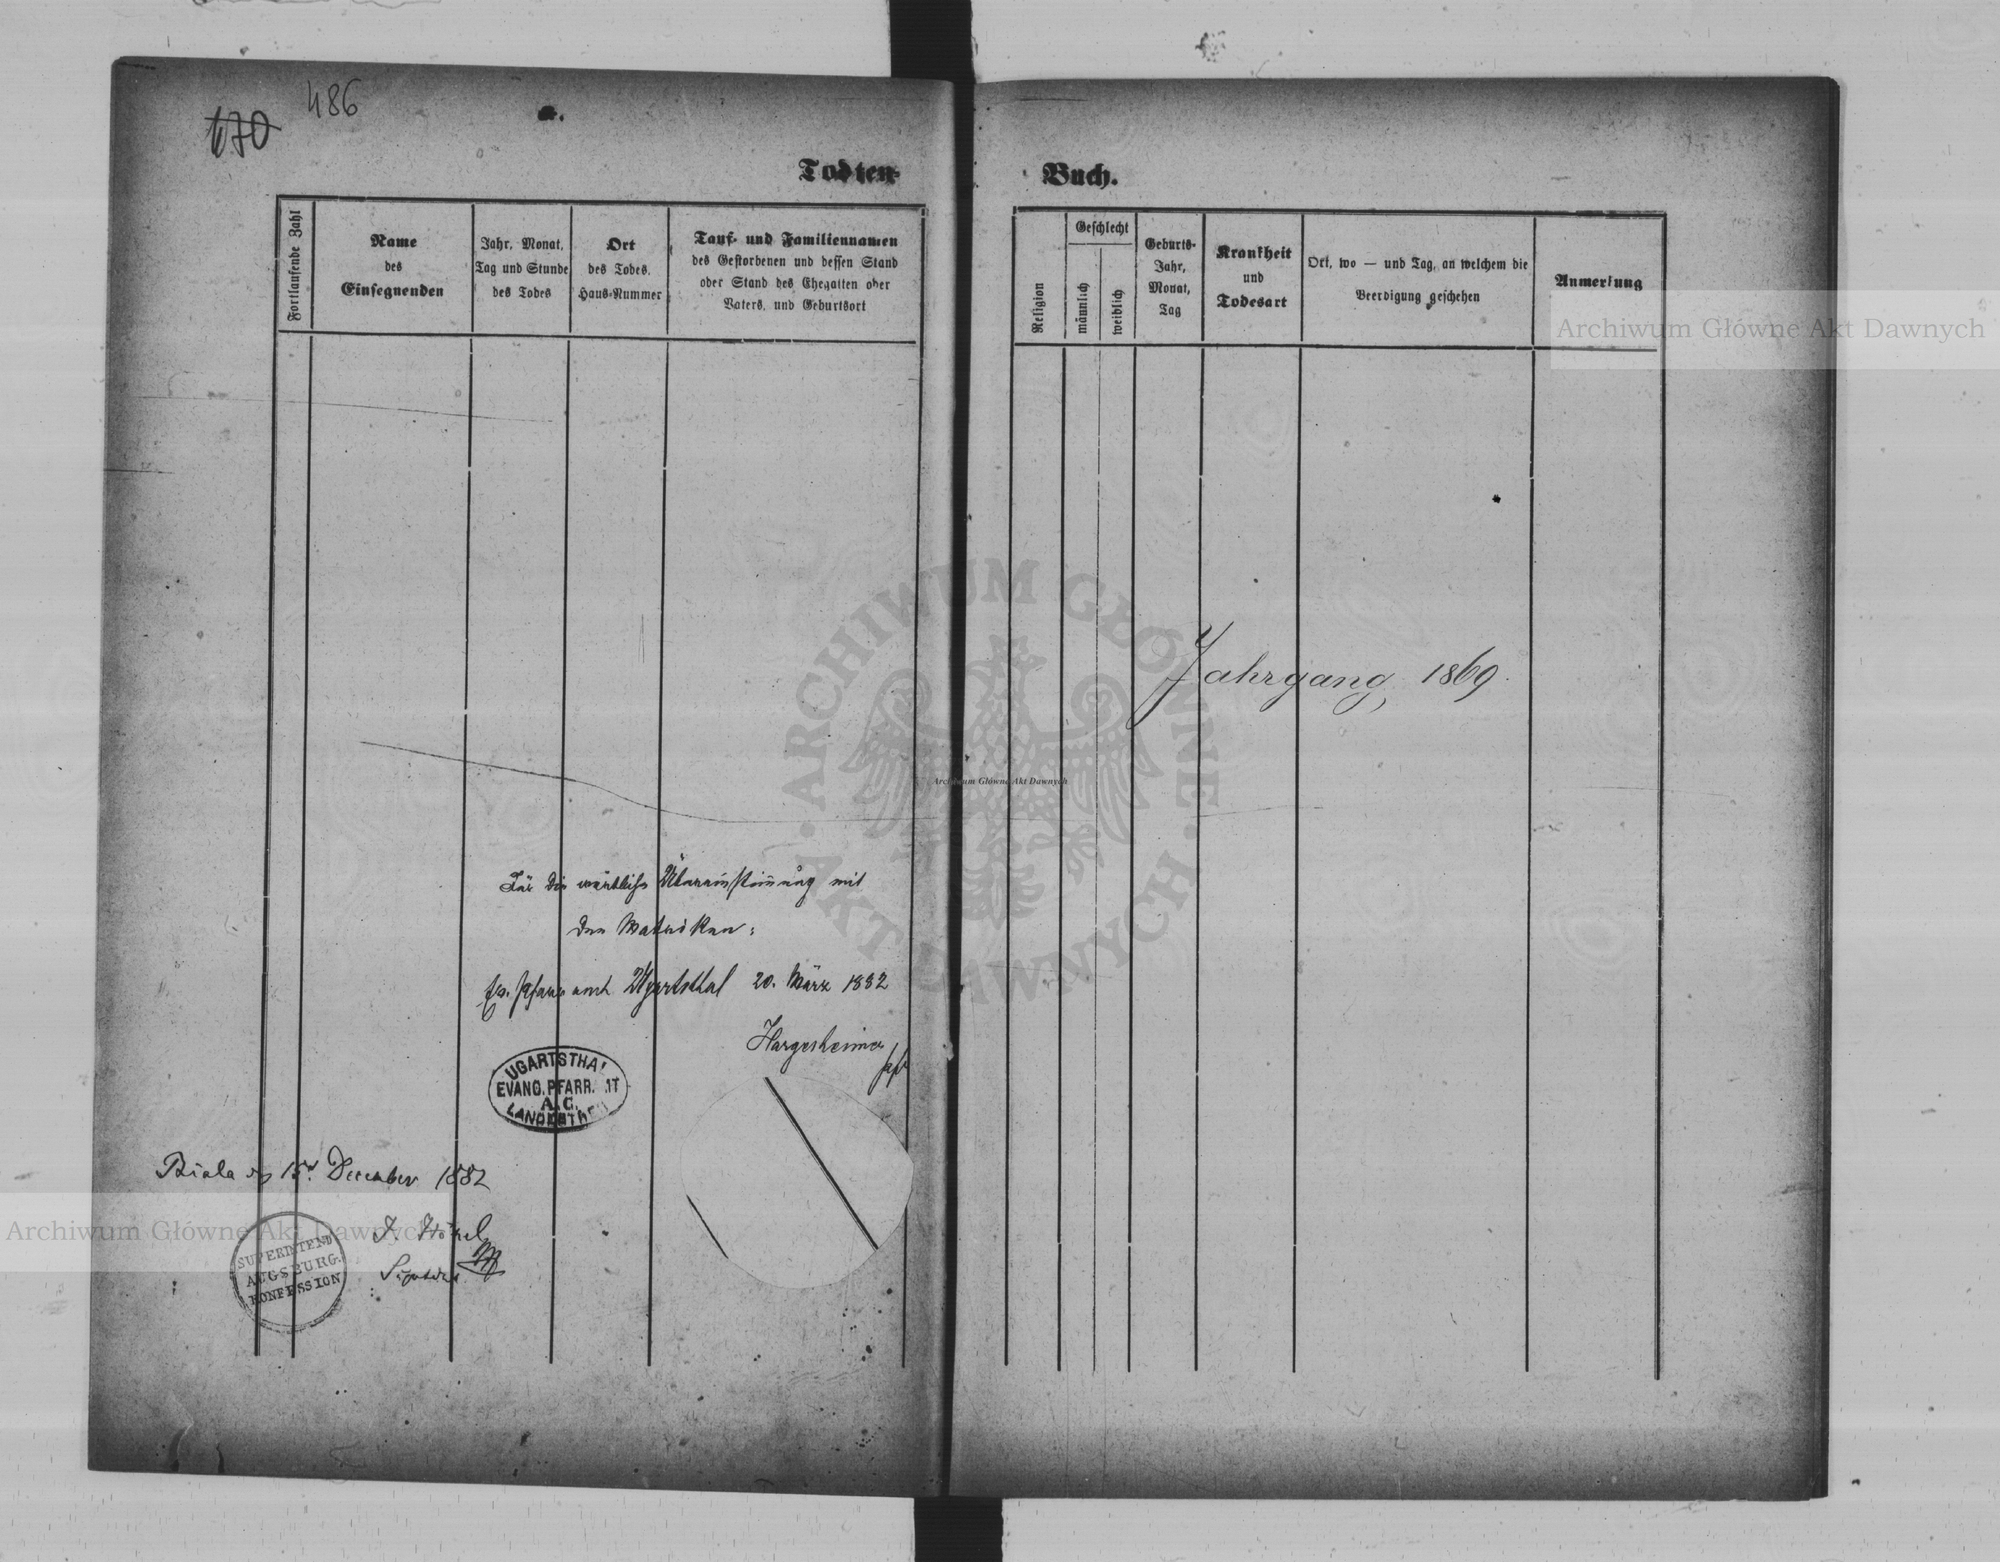 670
486
Todten-
Buch.
Fortlaufende Zahl
Name
des
Einsegnenden
Jahr, Monat,
Tag und Stunde
des Todes
Ort
des Todes,
Haus-Nummer
Tauf- und Familiennamen
des Gestorbenen und dessen Stand
oder Stand des Ehegatten oder
Vaters, und Geburtsort
Religion
Geschlecht
männlich
weiblich
Geburts-
Jahr,
Monat,
Tag
Krankheit
und
Todesart
Ort, wo — und Tag, an welchem die
Beerdigung geschehen
Anmerkung
Archiwum Główne Akt Dawnych
Jahrgang, 1869.
ARCHIWUM GŁÓWNE
AKT DAWNYCH
Archiwum Główne Akt Dawnych
Für die wörtliche Übereinstimmung mit
den Matriken:
Ev. Pfarramt Ugartsthal 20. März 1882
Hargesheimer
UGARTSTHAL
EVANG. PFARR. MT
A. C.
LANDESTREU
Biala 15. December 1882
Archiwum Główne Akt Dawnych
J. Hönel
SUPERINTEND
AUGSBURG.
KONFESSION